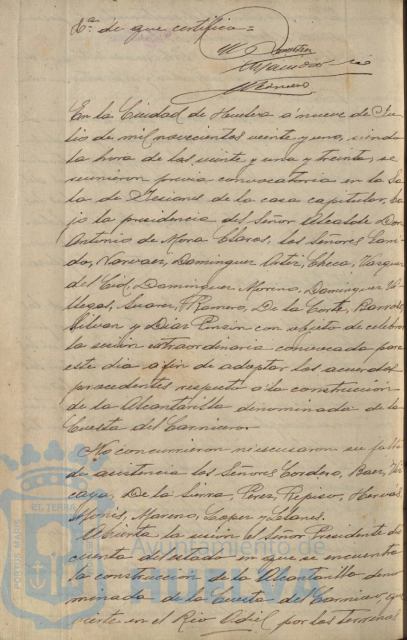 Sª. de que certifico=
En la Ciudad de Huelva á nueve de Ju-
lio de mil novecientos veinte y uno, siendo
la hora de las veinte y una y treinta, se
reunieron previa convocatoria en la Sa-
la de Sesiones de la casa capitular, ba-
jo la presidencia del Señor Alcalde Don
Antonio de Mora Claros, los Señores Garri-
do, Narvaez, Dominguez Ortiz, Checa, Vazquez
del Cid, Dominguez Moreno, Dominguez Vi-
llegas, Suarez, Romero, De la Corte, Barroso,
Silvan y Diaz con objeto de celebrar
la sesión extraordinaria convocada para
este dia a fin de adoptar los acuerdos
procedentes respecto a la construcción
de la Alcantarilla denominada de la
Cuesta del Carnicero
No concurrieron ni escusaron su falta
de asistencia los Señores Cordero, Baez, Viz-
caya, De la Sierra, Perez, Repiso, Hervás,
Monís, Moreno, Lopez y Llanes.
Abierta la sesión el Señor Presidente dió
cuenta del estado en que se encuentra
la construcción de la Alcantarilla deno-
minada de la Cuesta del Carnicero, que
vierte en el Rio Odiel por los terrenos
PORTUS MARIS
ET TERRAE
Ayuntamiento de
HUELVA